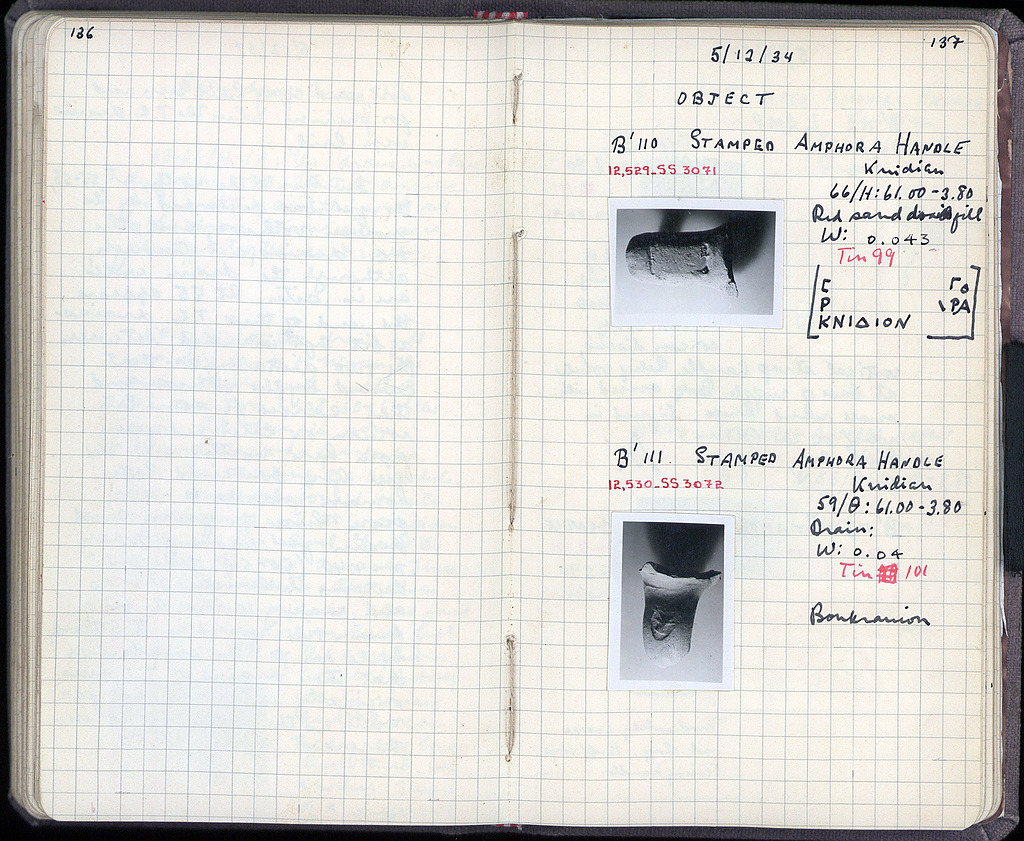 136
137
5/12/34
OBJECT
B'110 STAMPED AMPHORA HANDLE
12,529-SS 3071
Knidian
66/H: 61.00-3.80
Red sand drain fill
W: 0.043
Tin 99
[Ε Γο
Ρ \ΡΑ
ΚΝΙΔΙΟΝ ]
B'111. STAMPED AMPHORA HANDLE
12,530-SS 3072
Knidian
59/Θ: 61.00-3.80
Drain:
W: 0.04
Tin 101
Boukranion